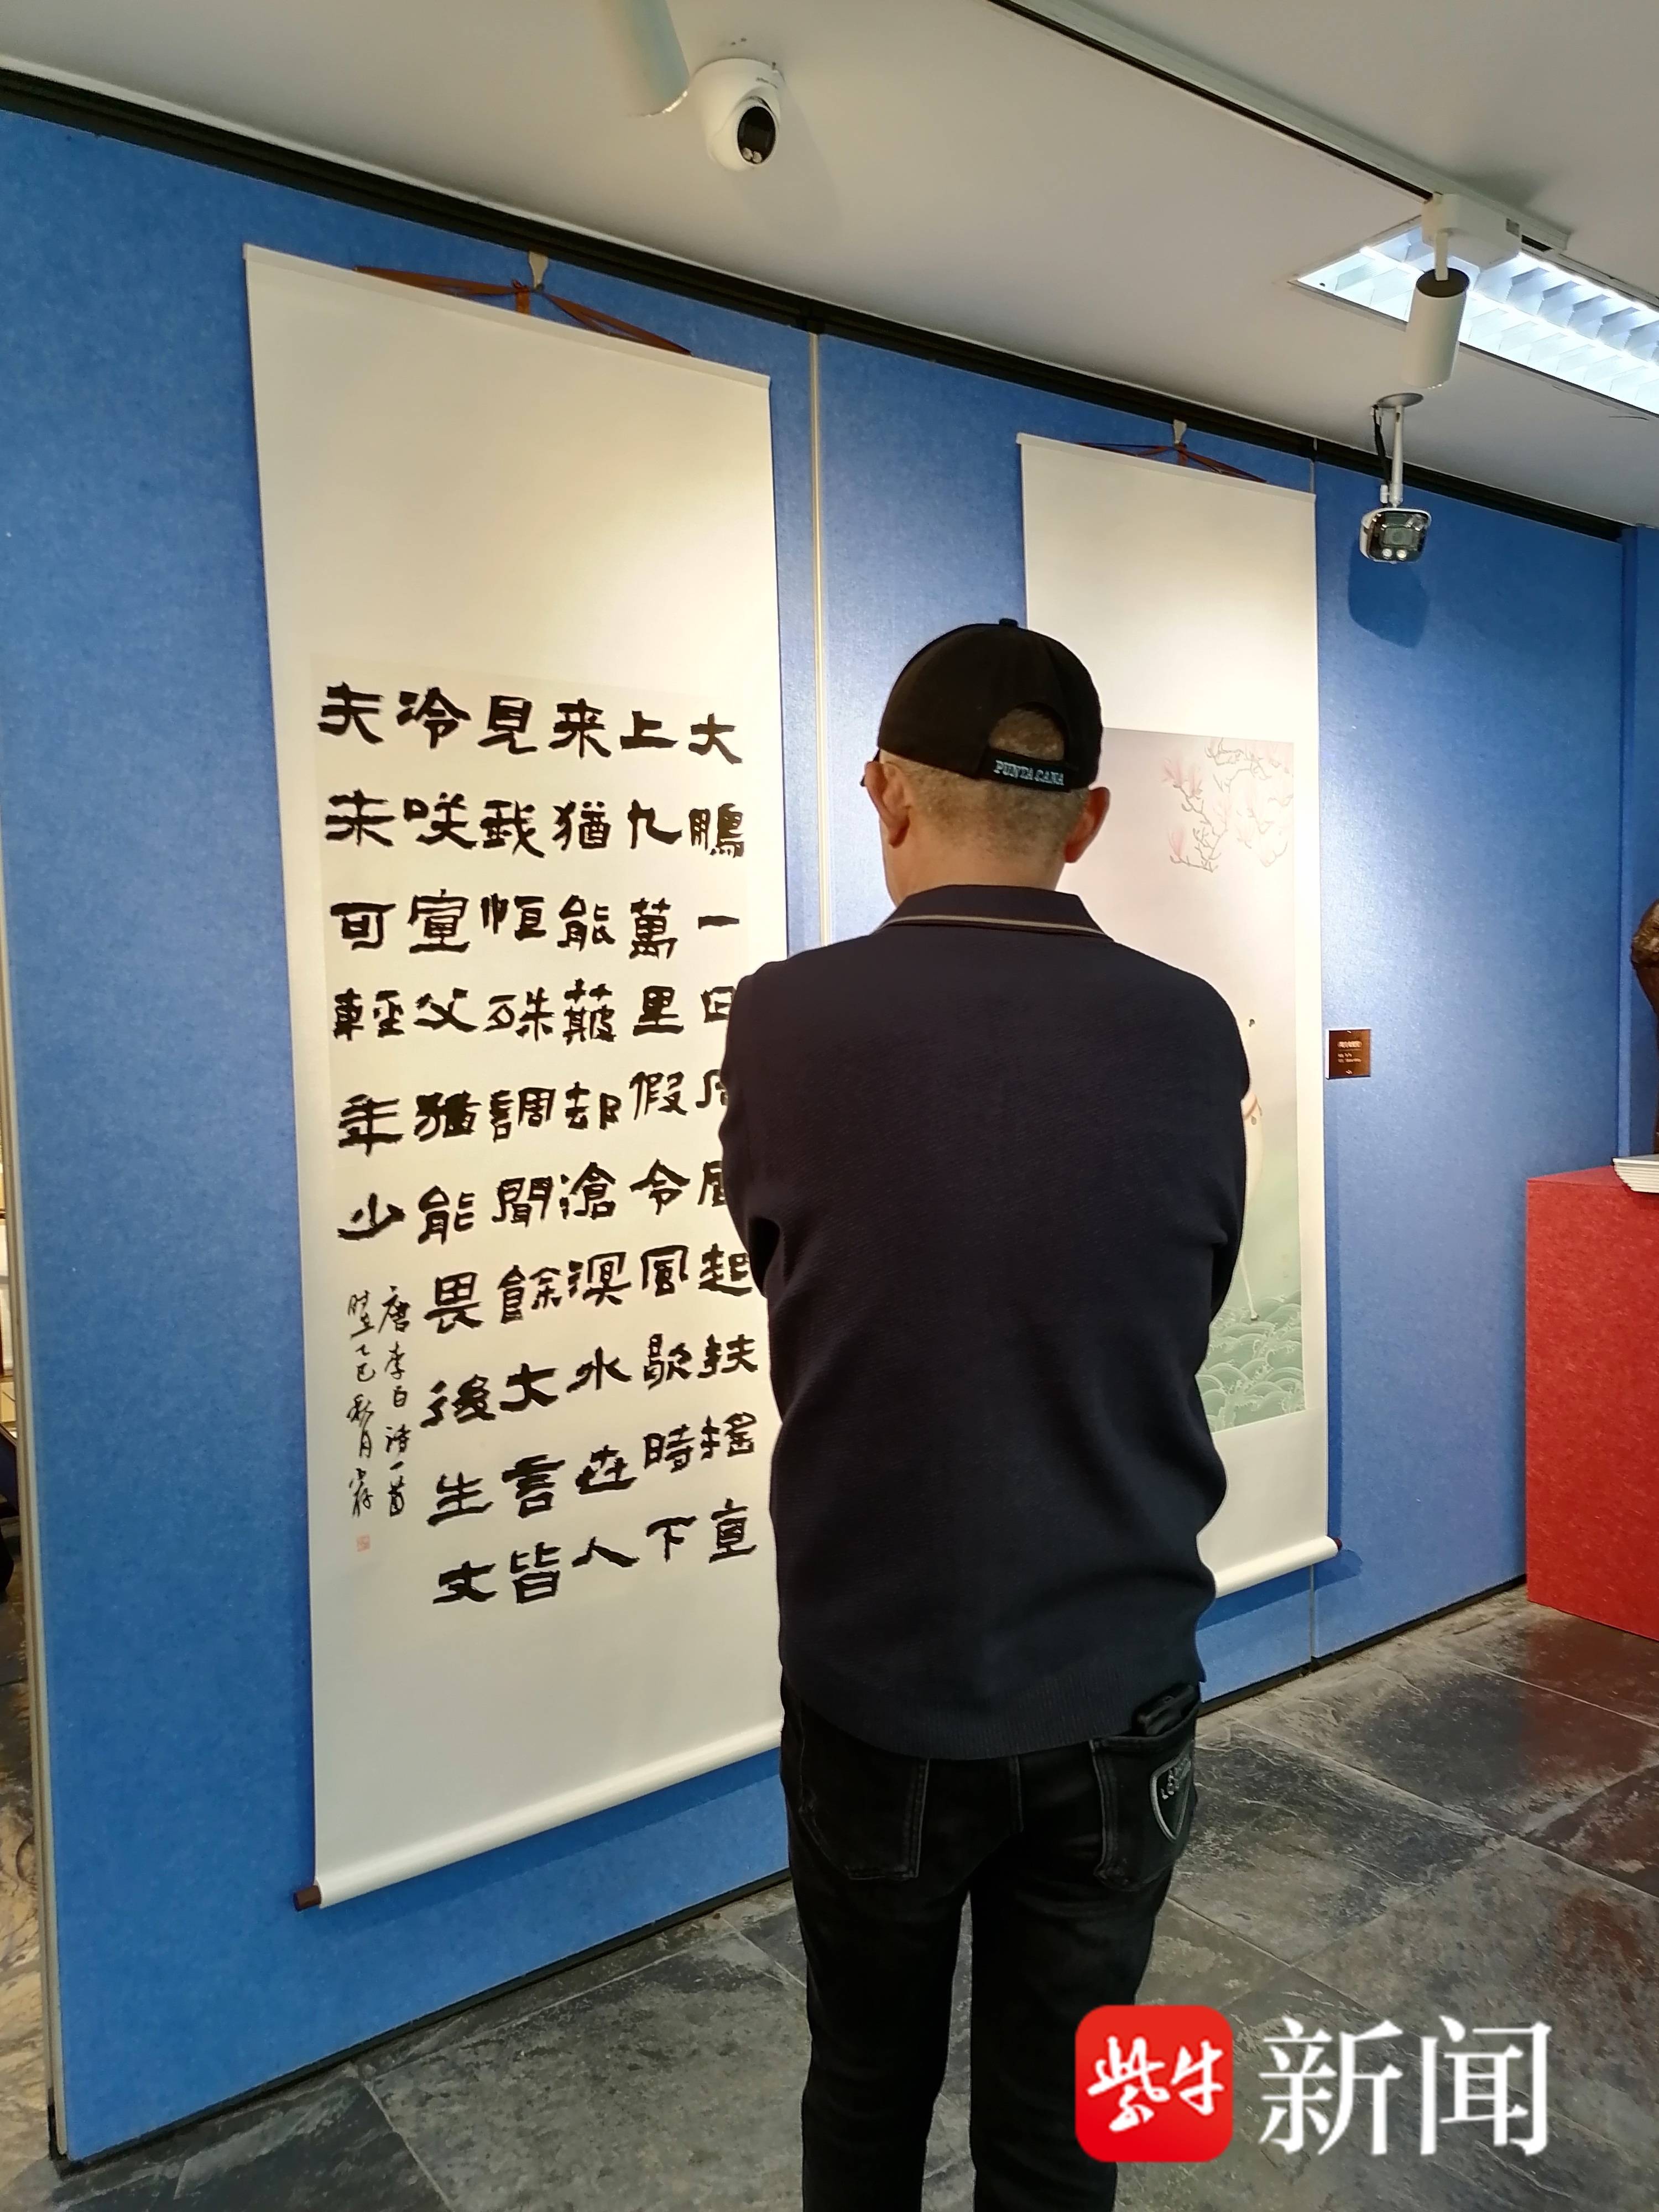 大鵬一日同風起扶搖直
上九萬里假令風歇時下
来猶能簸却滄溟水世人
見我恒殊調聞餘大言皆
冷咲宣父猶能畏後生丈
夫未可輕年少
唐李白诗一首
時在乙巳秋月
PUNTA CANA
紫牛新闻